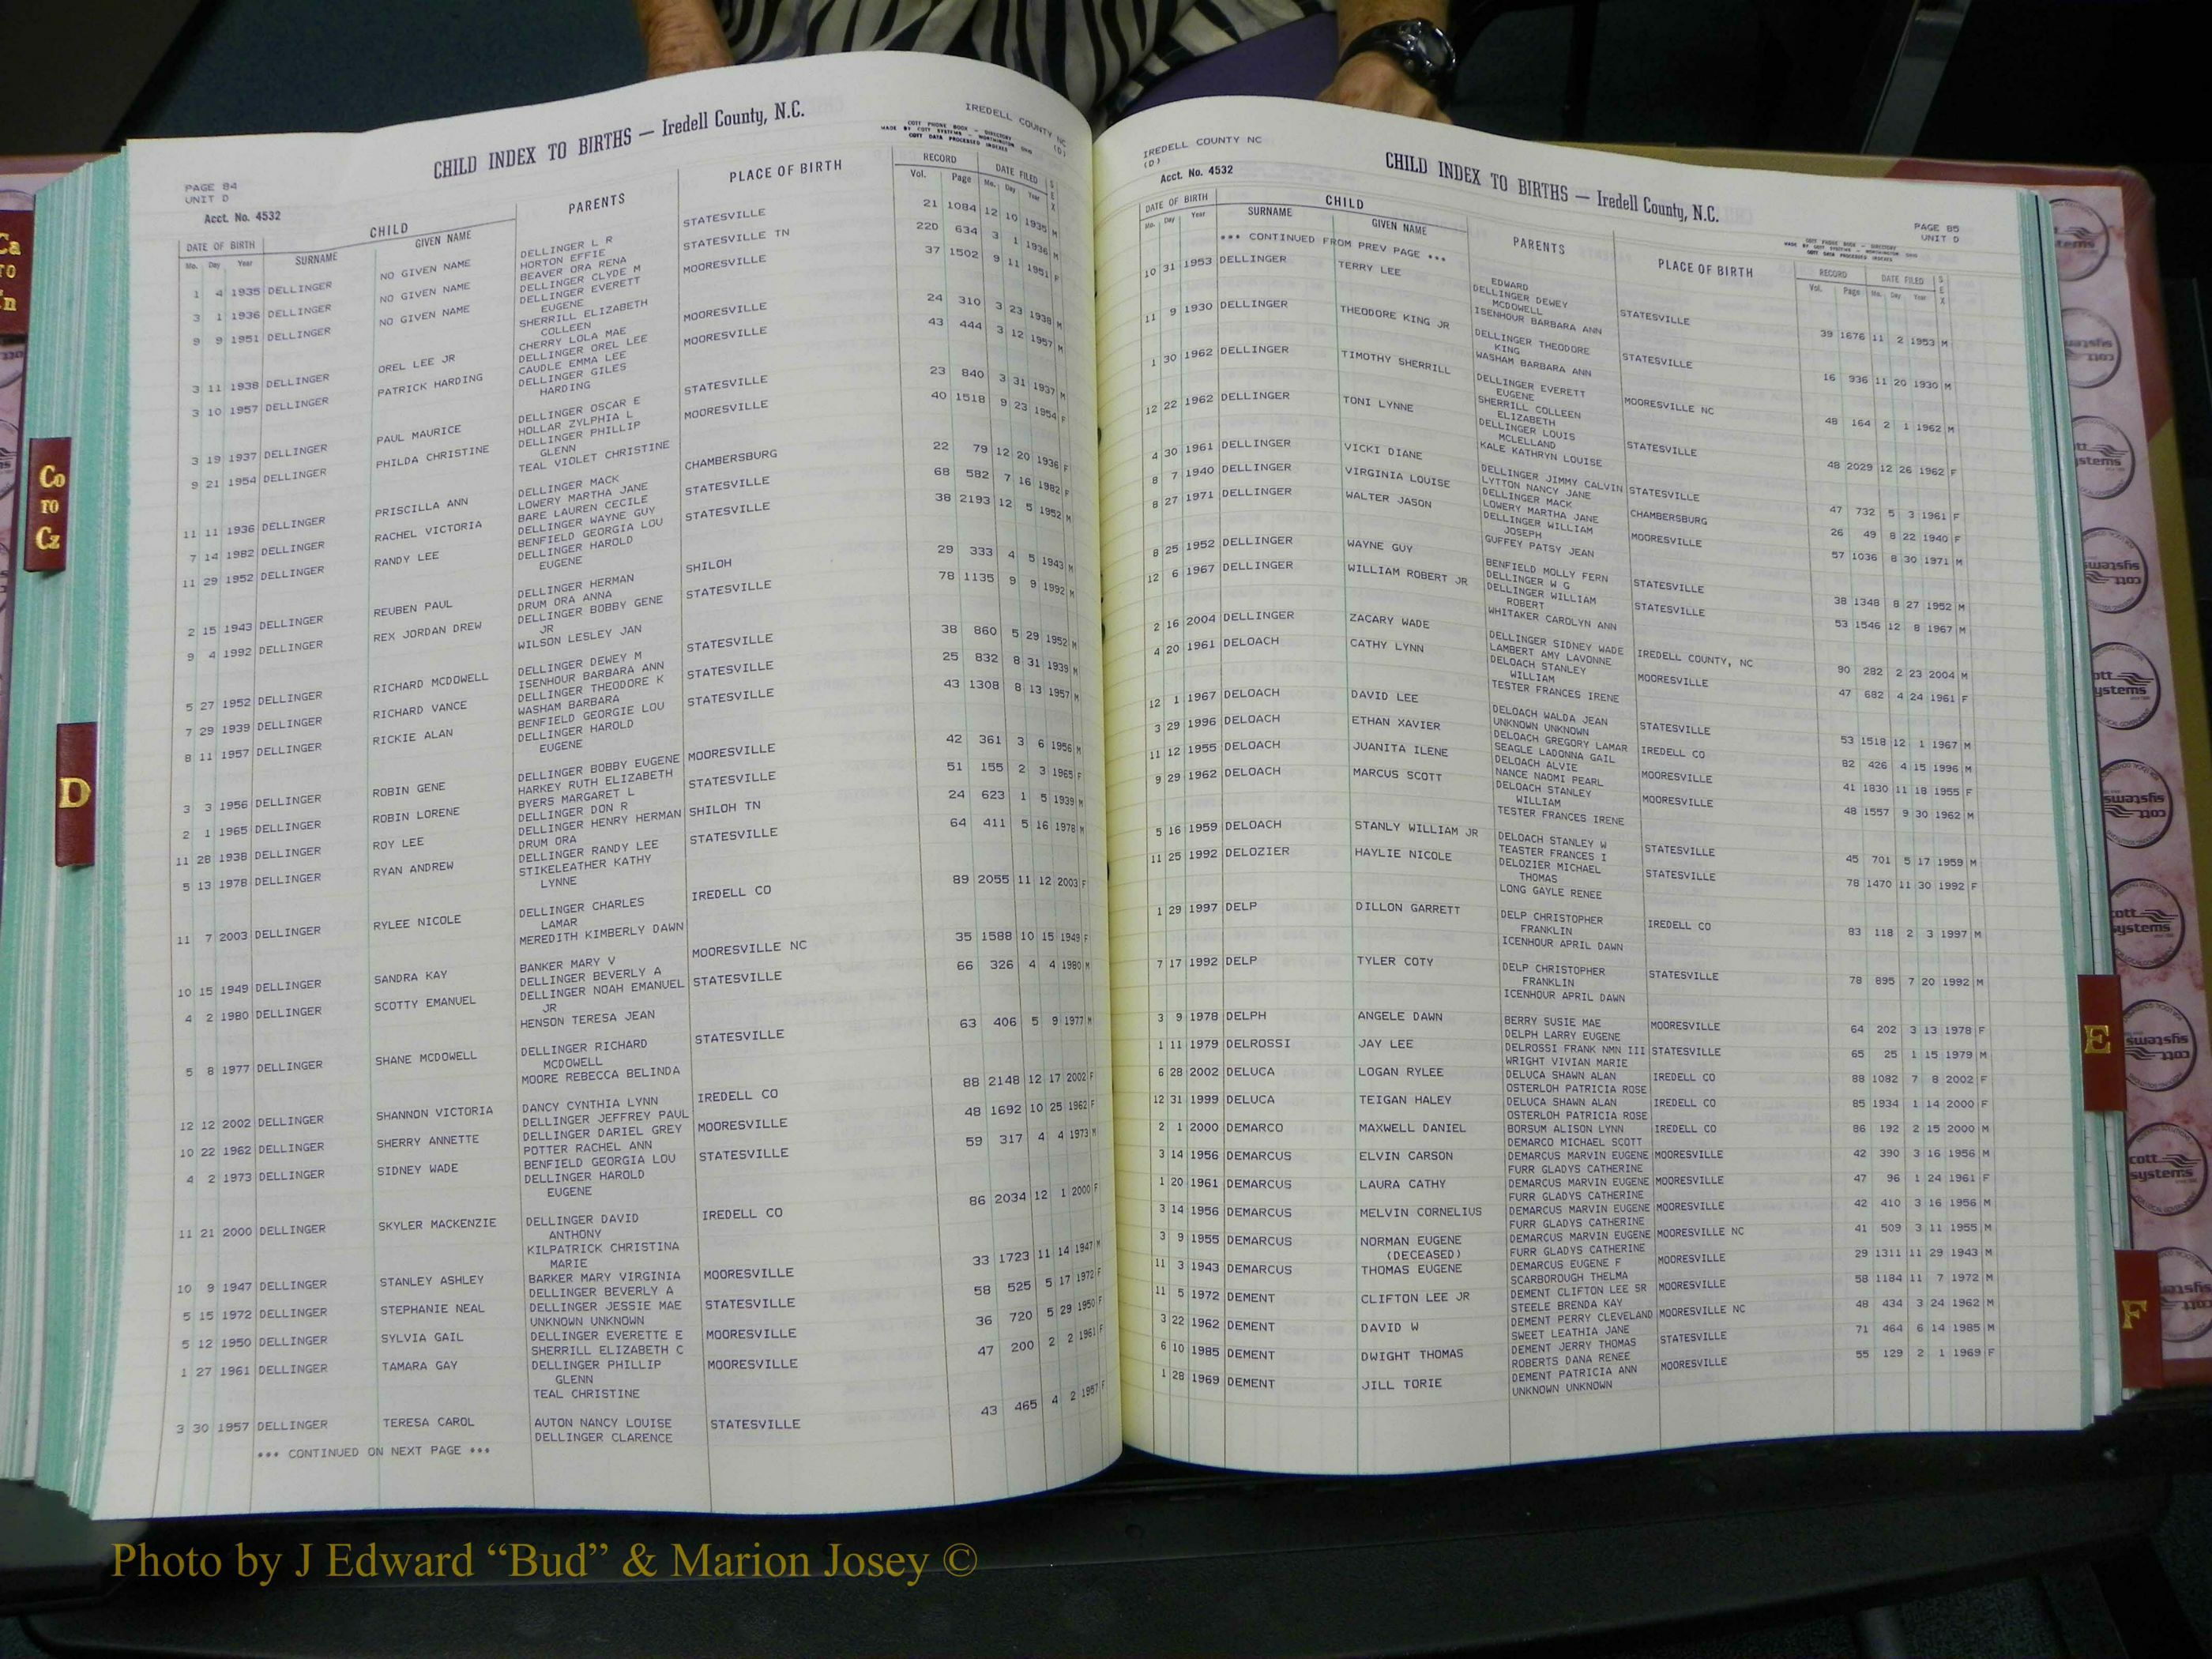 IREDELL COUNTY NC
(D)
COTT PHONE BOOK - DIRECTORY
MADE BY COTT SYSTEMS - WORTHINGTON OHIO
COTT DATA PROCESSED INDEXES
CHILD INDEX TO BIRTHS — Iredell County, N.C.
PAGE 84
UNIT D
Acct. No. 4532
CHILD PARENTS PLACE OF BIRTH RECORD DATE FILED SEX
DATE OF BIRTH SURNAME GIVEN NAME Vol. Page Mo. Day Year
Mo. Day Year
1 4 1935 DELLINGER NO GIVEN NAME DELLINGER L R STATESVILLE 21 1084 12 10 1935 M
HORTON EFFIE
3 1 1936 DELLINGER NO GIVEN NAME BEAVER ORA RENA STATESVILLE TN 220 634 3 1 1936 M
DELLINGER CLYDE M
9 9 1951 DELLINGER NO GIVEN NAME DELLINGER EVERETT MOORESVILLE 37 1502 9 11 1951 F
EUGENE
SHERRILL ELIZABETH
COLLEEN
3 11 1938 DELLINGER OREL LEE JR CHERRY LOLA MAE MOORESVILLE 24 310 3 23 1938 M
DELLINGER OREL LEE
3 10 1957 DELLINGER PATRICK HARDING CAUDLE EMMA LEE MOORESVILLE 43 444 3 12 1957 M
DELLINGER GILES
HARDING
3 19 1937 DELLINGER PAUL MAURICE DELLINGER OSCAR E STATESVILLE 23 840 3 31 1937 M
HOLLAR ZYLPHIA L
9 21 1954 DELLINGER PHILDA CHRISTINE DELLINGER PHILLIP MOORESVILLE 40 1518 9 23 1954 F
GLENN
TEAL VIOLET CHRISTINE
11 11 1936 DELLINGER PRISCILLA ANN DELLINGER MACK CHAMBERSBURG 22 79 12 20 1936 F
LOWERY MARTHA JANE
7 14 1982 DELLINGER RACHEL VICTORIA BARE LAUREN CECILE STATESVILLE 68 582 7 16 1982 F
DELLINGER WAYNE GUY
11 29 1952 DELLINGER RANDY LEE BENFIELD GEORGIA LOU STATESVILLE 38 2193 12 5 1952 M
DELLINGER HAROLD
EUGENE
2 15 1943 DELLINGER REUBEN PAUL DELLINGER HERMAN SHILOH 29 333 4 5 1943 M
DRUM ORA ANNA
9 4 1992 DELLINGER REX JORDAN DREW DELLINGER BOBBY GENE STATESVILLE 78 1135 9 9 1992 M
JR
WILSON LESLEY JAN
5 27 1952 DELLINGER RICHARD MCDOWELL DELLINGER DEWEY M STATESVILLE 38 860 5 29 1952 M
ISENHOUR BARBARA ANN
7 29 1939 DELLINGER RICHARD VANCE DELLINGER THEODORE K STATESVILLE 25 832 8 31 1939 M
WASHAM BARBARA
8 11 1957 DELLINGER RICKIE ALAN BENFIELD GEORGIE LOU STATESVILLE 43 1308 8 13 1957 M
DELLINGER HAROLD
EUGENE
3 3 1956 DELLINGER ROBIN GENE DELLINGER BOBBY EUGENE MOORESVILLE 42 361 3 6 1956 M
HARKEY RUTH ELIZABETH
2 1 1965 DELLINGER ROBIN LORENE BYERS MARGARET L STATESVILLE 51 155 2 3 1965 F
DELLINGER DON R
11 28 1938 DELLINGER ROY LEE DELLINGER HENRY HERMAN SHILOH TN 24 623 1 5 1939 M
DRUM ORA
5 13 1978 DELLINGER RYAN ANDREW DELLINGER RANDY LEE STATESVILLE 64 411 5 16 1978 M
STIKELEATHER KATHY
LYNNE
11 7 2003 DELLINGER RYLEE NICOLE DELLINGER CHARLES IREDELL CO 89 2055 11 12 2003 F
LAMAR
MEREDITH KIMBERLY DAWN
10 15 1949 DELLINGER SANDRA KAY BANKER MARY V MOORESVILLE NC 35 1588 10 15 1949 F
DELLINGER BEVERLY A
4 2 1980 DELLINGER SCOTTY EMANUEL DELLINGER NOAH EMANUEL STATESVILLE 66 326 4 4 1980 M
JR
HENSON TERESA JEAN
5 8 1977 DELLINGER SHANE MCDOWELL DELLINGER RICHARD STATESVILLE 63 406 5 9 1977 M
MCDOWELL
MOORE REBECCA BELINDA
12 12 2002 DELLINGER SHANNON VICTORIA DANCY CYNTHIA LYNN IREDELL CO 88 2148 12 17 2002 F
DELLINGER JEFFREY PAUL
10 22 1962 DELLINGER SHERRY ANNETTE DELLINGER DARIEL GREY MOORESVILLE 48 1692 10 25 1962 F
POTTER RACHEL ANN
4 2 1973 DELLINGER SIDNEY WADE BENFIELD GEORGIA LOU STATESVILLE 59 317 4 4 1973 M
DELLINGER HAROLD
EUGENE
11 21 2000 DELLINGER SKYLER MACKENZIE DELLINGER DAVID IREDELL CO 86 2034 12 1 2000 F
ANTHONY
KILPATRICK CHRISTINA
MARIE
10 9 1947 DELLINGER STANLEY ASHLEY BARKER MARY VIRGINIA MOORESVILLE 33 1723 11 14 1947 M
DELLINGER BEVERLY A
5 15 1972 DELLINGER STEPHANIE NEAL DELLINGER JESSIE MAE STATESVILLE 58 525 5 17 1972 F
UNKNOWN UNKNOWN
5 12 1950 DELLINGER SYLVIA GAIL DELLINGER EVERETTE E MOORESVILLE 36 720 5 29 1950 F
SHERRILL ELIZABETH C
1 27 1961 DELLINGER TAMARA GAY DELLINGER PHILLIP MOORESVILLE 47 200 2 2 1961 F
GLENN
TEAL CHRISTINE
3 30 1957 DELLINGER TERESA CAROL AUTON NANCY LOUISE STATESVILLE 43 465 4 2 1957 F
DELLINGER CLARENCE
*** CONTINUED ON NEXT PAGE ***
IREDELL COUNTY NC
(D)
Acct. No. 4532
CHILD INDEX TO BIRTHS — Iredell County, N.C.
PAGE 85
UNIT D
COTT PHONE BOOK - DIRECTORY
MADE BY COTT SYSTEMS - WORTHINGTON OHIO
COTT DATA PROCESSED INDEXES
DATE OF BIRTH CHILD PARENTS PLACE OF BIRTH RECORD DATE FILED SEX
Mo. Day Year SURNAME GIVEN NAME Vol. Page Mo. Day Year
*** CONTINUED FROM PREV PAGE ***
EDWARD
10 31 1953 DELLINGER TERRY LEE DELLINGER DEWEY STATESVILLE 39 1676 11 2 1953 M
MCDOWELL
ISENHOUR BARBARA ANN
11 9 1930 DELLINGER THEODORE KING JR DELLINGER THEODORE STATESVILLE 16 936 11 20 1930 M
KING
WASHAM BARBARA ANN
1 30 1962 DELLINGER TIMOTHY SHERRILL DELLINGER EVERETT MOORESVILLE NC 48 164 2 1 1962 M
EUGENE
SHERRILL COLLEEN
ELIZABETH
12 22 1962 DELLINGER TONI LYNNE DELLINGER LOUIS STATESVILLE 48 2029 12 26 1962 F
MCLELLAND
KALE KATHRYN LOUISE
4 30 1961 DELLINGER VICKI DIANE DELLINGER JIMMY CALVIN STATESVILLE 47 732 5 3 1961 F
LYTTON NANCY JANE
8 7 1940 DELLINGER VIRGINIA LOUISE DELLINGER MACK CHAMBERSBURG 26 49 8 22 1940 F
LOWERY MARTHA JANE
8 27 1971 DELLINGER WALTER JASON DELLINGER WILLIAM MOORESVILLE 57 1036 8 30 1971 M
JOSEPH
GUFFEY PATSY JEAN
8 25 1952 DELLINGER WAYNE GUY BENFIELD MOLLY FERN STATESVILLE 38 1348 8 27 1952 M
DELLINGER W G
12 6 1967 DELLINGER WILLIAM ROBERT JR DELLINGER WILLIAM STATESVILLE 53 1546 12 8 1967 M
ROBERT
WHITAKER CAROLYN ANN
2 16 2004 DELLINGER ZACARY WADE DELLINGER SIDNEY WADE IREDELL COUNTY, NC 90 282 2 23 2004 M
LAMBERT AMY LAVONNE
4 20 1961 DELOACH CATHY LYNN DELOACH STANLEY MOORESVILLE 47 682 4 24 1961 F
WILLIAM
TESTER FRANCES IRENE
12 1 1967 DELOACH DAVID LEE DELOACH WALDA JEAN STATESVILLE 53 1518 12 1 1967 M
UNKNOWN UNKNOWN
3 29 1996 DELOACH ETHAN XAVIER DELOACH GREGORY LAMAR IREDELL CO 82 426 4 15 1996 M
SEAGLE LADONNA GAIL
11 12 1955 DELOACH JUANITA ILENE DELOACH ALVIE MOORESVILLE 41 1830 11 18 1955 F
NANCE NAOMI PEARL
9 29 1962 DELOACH MARCUS SCOTT DELOACH STANLEY MOORESVILLE 48 1557 9 30 1962 M
WILLIAM
TESTER FRANCES IRENE
5 16 1959 DELOACH STANLY WILLIAM JR DELOACH STANLEY W STATESVILLE 45 701 5 17 1959 M
TEASTER FRANCES I
11 25 1992 DELOZIER HAYLIE NICOLE DELOZIER MICHAEL STATESVILLE 78 1470 11 30 1992 F
THOMAS
LONG GAYLE RENEE
1 29 1997 DELP DILLON GARRETT DELP CHRISTOPHER IREDELL CO 83 118 2 3 1997 M
FRANKLIN
ICENHOUR APRIL DAWN
7 17 1992 DELP TYLER COTY DELP CHRISTOPHER STATESVILLE 78 895 7 20 1992 M
FRANKLIN
ICENHOUR APRIL DAWN
3 9 1978 DELPH ANGELE DAWN BERRY SUSIE MAE MOORESVILLE 64 202 3 13 1978 F
DELPH LARRY EUGENE
1 11 1979 DELROSSI JAY LEE DELROSSI FRANK NMN III STATESVILLE 65 25 1 15 1979 M
WRIGHT VIVIAN MARIE
6 28 2002 DELUCA LOGAN RYLEE DELUCA SHAWN ALAN IREDELL CO 88 1082 7 8 2002 F
OSTERLOH PATRICIA ROSE
12 31 1999 DELUCA TEIGAN HALEY DELUCA SHAWN ALAN IREDELL CO 85 1934 1 14 2000 F
OSTERLOH PATRICIA ROSE
2 1 2000 DEMARCO MAXWELL DANIEL BORSUM ALISON LYNN IREDELL CO 86 192 2 15 2000 M
DEMARCO MICHAEL SCOTT
3 14 1956 DEMARCUS ELVIN CARSON DEMARCUS MARVIN EUGENE MOORESVILLE 42 390 3 16 1956 M
FURR GLADYS CATHERINE
1 20 1961 DEMARCUS LAURA CATHY DEMARCUS MARVIN EUGENE MOORESVILLE 47 96 1 24 1961 F
FURR GLADYS CATHERINE
3 14 1956 DEMARCUS MELVIN CORNELIUS DEMARCUS MARVIN EUGENE MOORESVILLE 42 410 3 16 1956 M
FURR GLADYS CATHERINE
3 9 1955 DEMARCUS NORMAN EUGENE DEMARCUS MARVIN EUGENE MOORESVILLE NC 41 509 3 11 1955 M
(DECEASED) FURR GLADYS CATHERINE
11 3 1943 DEMARCUS THOMAS EUGENE DEMARCUS EUGENE F MOORESVILLE 29 1311 11 29 1943 M
SCARBOROUGH THELMA
11 5 1972 DEMENT CLIFTON LEE JR DEMENT CLIFTON LEE SR MOORESVILLE 58 1184 11 7 1972 M
STEELE BRENDA KAY
3 22 1962 DEMENT DAVID W DEMENT PERRY CLEVELAND MOORESVILLE NC 48 434 3 24 1962 M
SWEET LEATHIA JANE
6 10 1985 DEMENT DWIGHT THOMAS DEMENT JERRY THOMAS STATESVILLE 71 464 6 14 1985 M
ROBERTS DANA RENEE
1 28 1969 DEMENT JILL TORIE DEMENT PATRICIA ANN MOORESVILLE 55 129 2 1 1969 F
UNKNOWN UNKNOWN
Ca
TO
Co
TO
Cz
D
E
F
cott
systems
Photo by J Edward “Bud” & Marion Josey ©